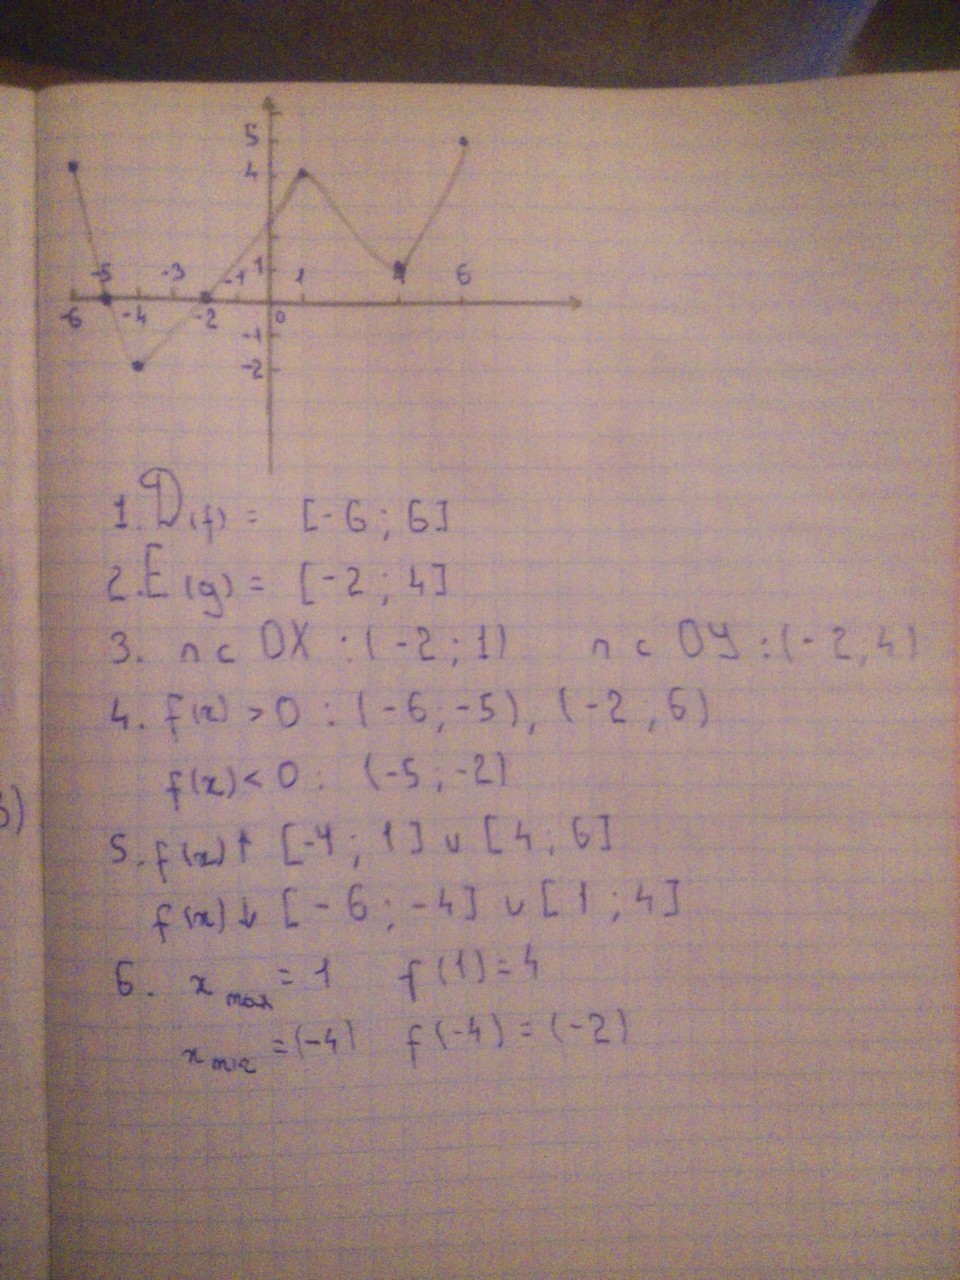 5
4
-5 -3 -1 1 1 4 6
-6 -4 -2 0
-1
-2
1. D(f) = [-6; 6]
2. E(g) = [-2; 4]
3. п с OX : (-2; 1) п с ОУ : (-2, 4)
4. f(x) > 0 : (-6; -5), (-2; 6)
f(x) < 0 : (-5; -2)
5. f(x)↑ [-4; 1] ∪ [4; 6]
f(x)↓ [-6; -4] ∪ [1; 4]
6. x max = 1 f(1) = 4
x min = (-4) f(-4) = (-2)